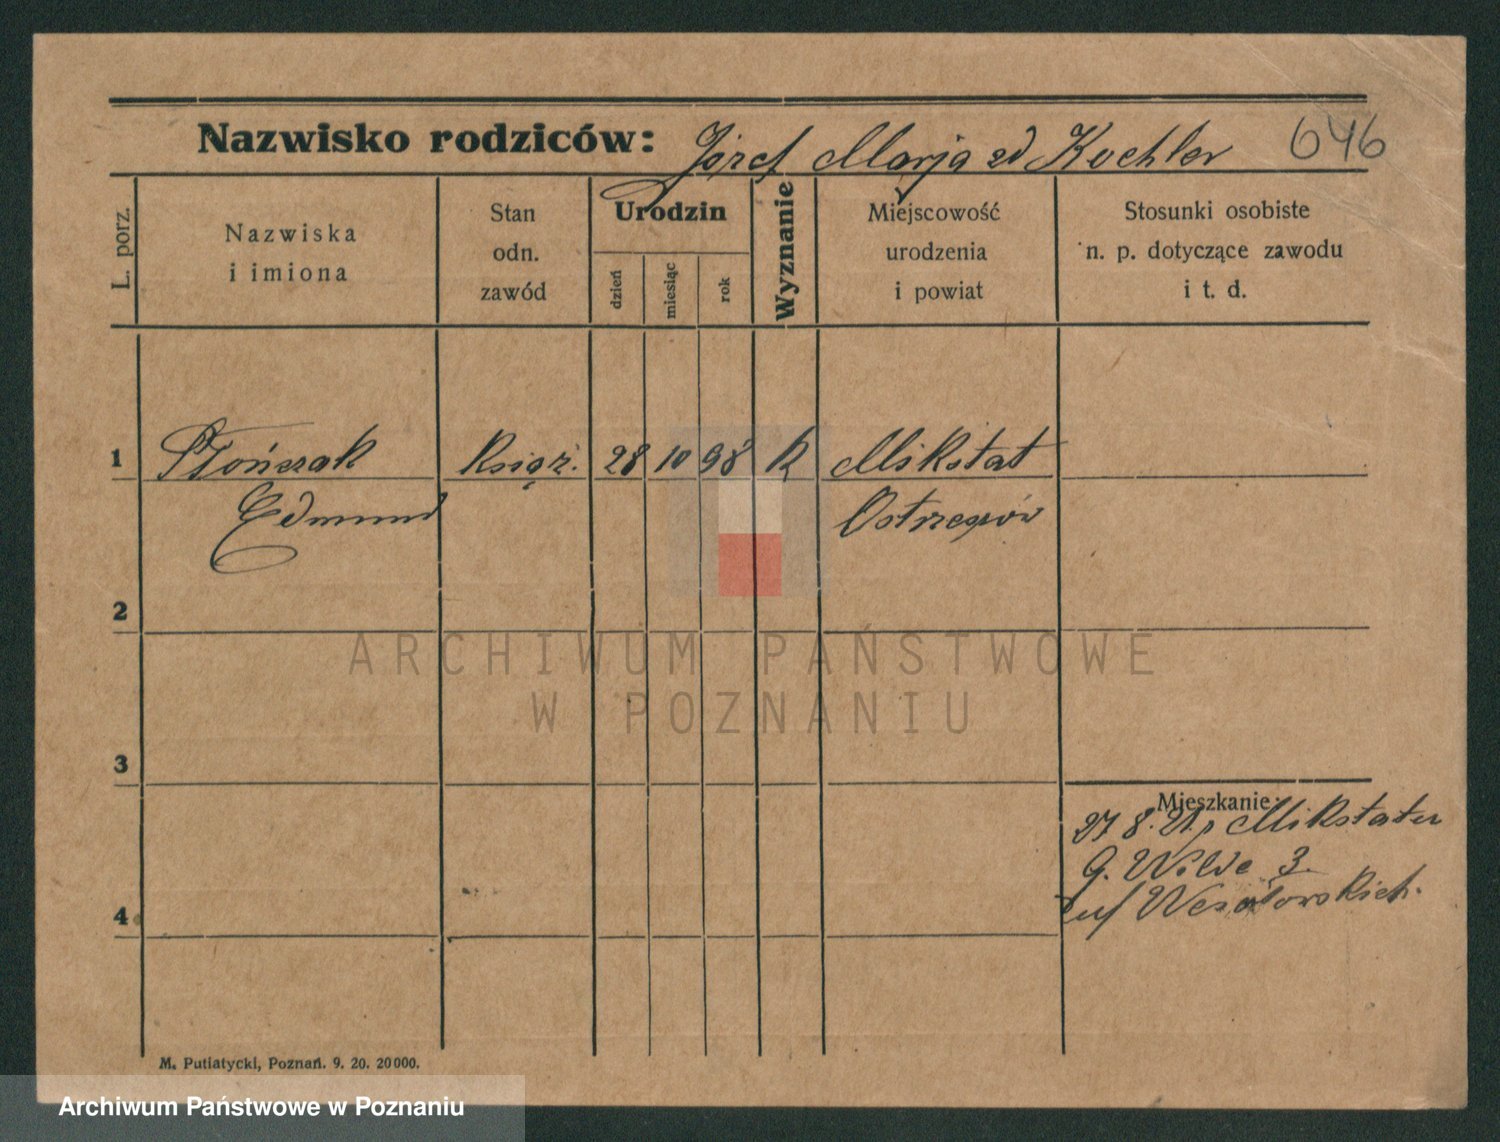 Nazwisko rodziców: Józef Marja zd Kochler 646
L. porz.
Nazwiska
i imiona
Stan
odn.
zawód
Urodzin
dzień
miesiąc
rok
Wyznanie
Miejscowość
urodzenia
i powiat
Stosunki osobiste
n. p. dotyczące zawodu
i t. d.
1 Płończak Księż. 28 10 98 k Mikstat
Edmund Ostrzeszów
2
3
4
ARCHIWUM PAŃSTWOWE
W POZNANIU
Mieszkanie:
27 8. 21. Mikstatu
G. Wilda 3.
M. Putiatycki, Poznań. 9. 20. 20000.
Archiwum Państwowe w Poznaniu